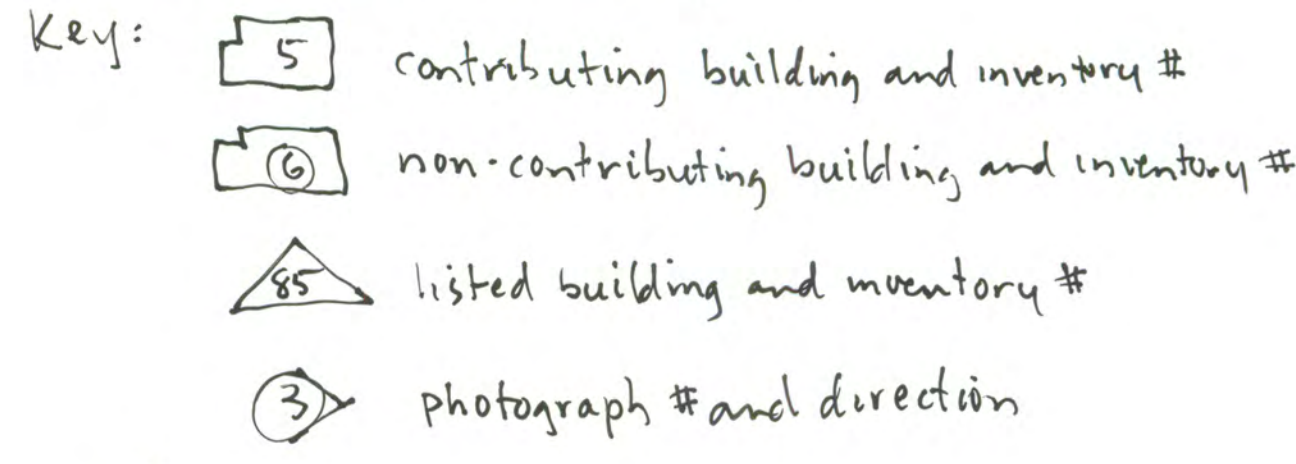 Key: 5 contributing building and inventory #
6 non-contributing building and inventory #
85 listed building and inventory #
3 photograph # and direction